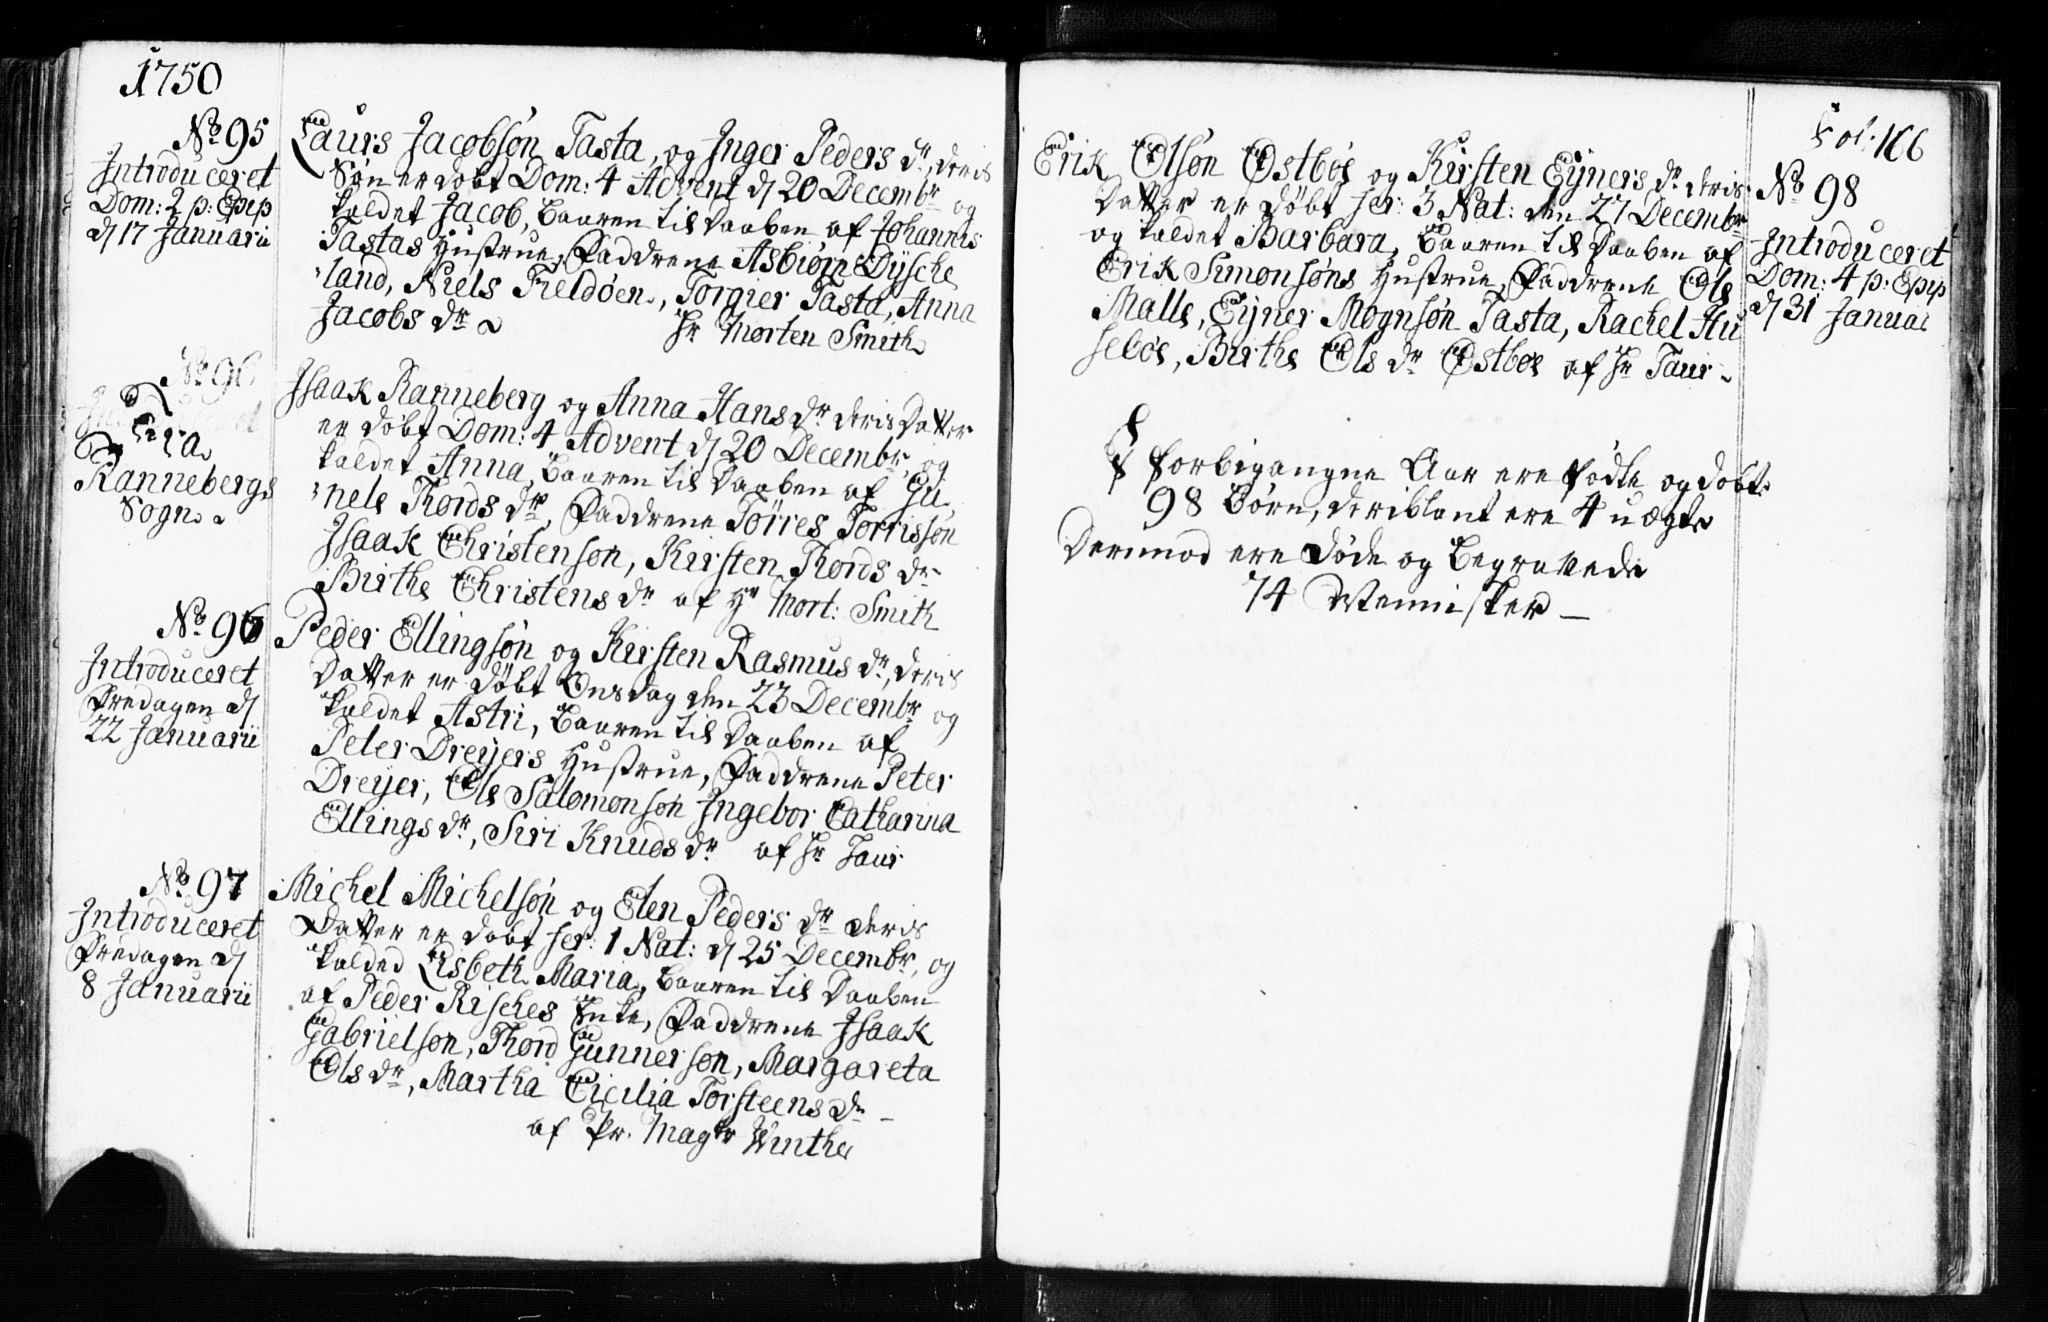 1750
No 95
Introduceret
Dom: 2 p: Epip
d 17 Januarii
Laurs Jacobsøn Tasta, og Inger Peders dr, deris
Søn er døbt Dom: 4 Advent d 20 Decembr og
kaldet Jacob, baaren til Daaben af Johannis
Tastas Hustrue, Faddrene Asbiørn Dÿsche
land, Niels Fieldøen, Torgier Tasta, Anna
Jacobs dr Hr Morten Smith
No 96
Extra
Rannebergs
Sogn
Isaak Ranneberg og Anna Hans dr deris Datter
er døbt Dom: 4 Advent d 20 Decembr, og
kaldet Anna, baaren til Daaben af Gu
nele Thords dr, Faddrene Tørres Torrissøn
Isaak Christensøn, Kirsten Thords dr
Birthe Christens dr af Hr Mort: Smith
No 96
Introduceret
Fredagen d
22 Januarii
Peder Ellingsøn og Kirsten Rasmus dr, deris
Datter er døbt Onsdag den 23 Decembr og
kaldet Astri, baaren til Daaben af
Peter Dreÿers Hustrue, Faddrene Peter
Dreÿer, Ole Salomonsøn Ingebor Catharina
Ellings dr, Siri Knuds dr af Hr Taur
No 97
Introduceret
Fredagen d
8 Januarii
Michel Michelsøn og Elen Peders dr deris
Datter er døbt fer: 1 Nat: d 25 Decembr, og
kalded Lisbeth Maria, baaren til Daaben
af Peder Risches Enke, Faddrene Isaak
Gabrielsøn, Thord Gunnersøn, Margareta
Ols dr, Martha Cicilia Torsteens dr
af Pr. Magr Winther
Fol: 166
Erik Olsøn Østbøe og Kirsten Eÿners dr deris
Datter er døbt fer: 3 Nat: den 27 Decembr
og kaldet Barbara, baaren til Daaben af
Erik Simonsøns Hustrue, Faddrene Ole
Malle, Eÿner Mognsøn Tasta, Rachel Hu
sebøe, Birthe Ols dr Østbøe af Hr Taur
No 98
Introduceret
Dom: 4 p: Epip
d 31 Januar
I forbigangne Aar ere fødte og døbte
98 Børn, deriblant ere 4 uægte
Derimod ere Døde og begravede
74 Mennisker